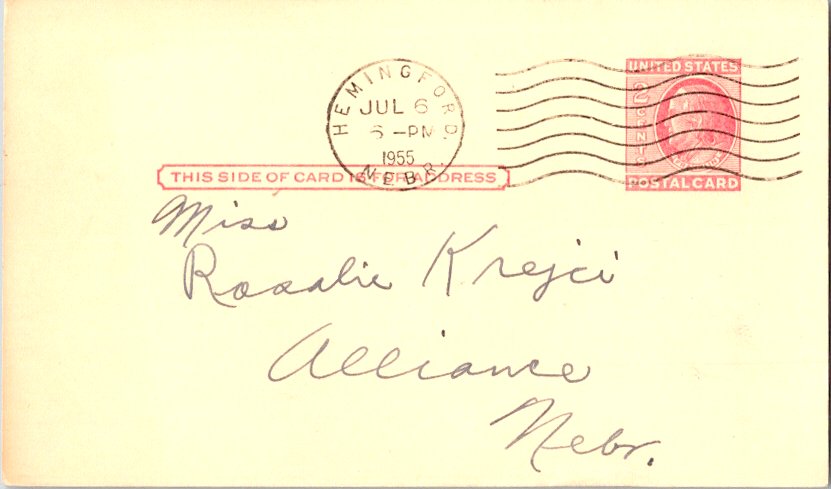 HEMINGFORD.
JUL 6
6 -PM
1955
NEBR.
UNITED STATES
2 CENTS
POSTAL CARD
THIS SIDE OF CARD IS FOR ADDRESS
Miss
Rosalie Krejci
Alliance
Nebr.